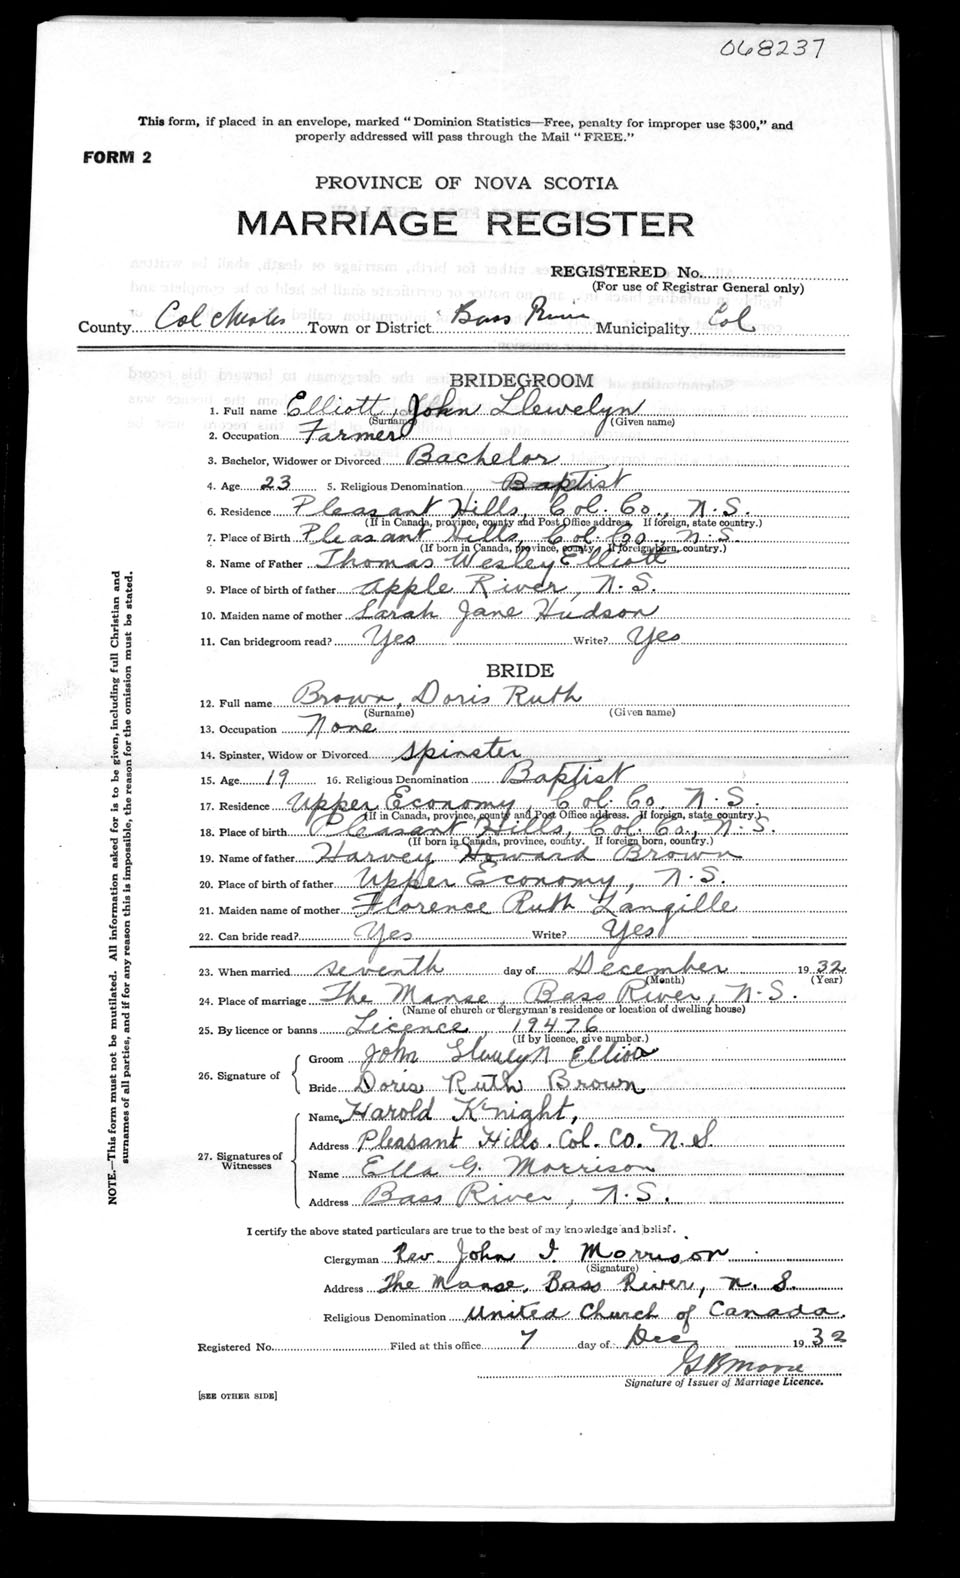 068237
This form, if placed in an envelope, marked "Dominion Statistics—Free, penalty for improper use $300," and
properly addressed will pass through the Mail "FREE."
FORM 2
PROVINCE OF NOVA SCOTIA
MARRIAGE REGISTER
REGISTERED No.
(For use of Registrar General only)
County Colchester Town or District Bass River Municipality Col
BRIDEGROOM
1. Full name Elliott, John Llewelyn
(Surname) (Given name)
2. Occupation Farmer
3. Bachelor, Widower or Divorced Bachelor
4. Age 23 5. Religious Denomination Baptist
6. Residence Pleasant Hills, Col. Co., N.S.
(If in Canada, province, county and Post Office address. If foreign, state country.)
7. Place of Birth Pleasant Hills, Col. Co., N.S.
(If born in Canada, province, county. If foreign born, country.)
8. Name of Father Thomas Wesley Elliott
9. Place of birth of father Apple River, N.S.
10. Maiden name of mother Sarah Jane Hudson
11. Can bridegroom read? Yes Write? Yes
BRIDE
12. Full name Brown, Doris Ruth
(Surname) (Given name)
13. Occupation None
14. Spinster, Widow or Divorced Spinster
15. Age 19 16. Religious Denomination Baptist
17. Residence Upper Economy, Col. Co. N.S.
(If in Canada, province, county and Post Office address. If foreign, state country.)
18. Place of birth Pleasant Hills, Col. Co., N.S.
(If born in Canada, province, county. If foreign born, country.)
19. Name of father Harvey Howard Brown
20. Place of birth of father Upper Economy, N.S.
21. Maiden name of mother Florence Ruth Langille
22. Can bride read? Yes Write? Yes
23. When married seventh day of December 1932
(Month) (Year)
24. Place of marriage The Manse, Bass River, N.S.
(Name of church or clergyman's residence or location of dwelling house)
25. By licence or banns Licence, 19476
(If by licence, give number.)
26. Signature of
Groom John Llewelyn Elliott
Bride Doris Ruth Brown
27. Signatures of Witnesses
Name Harold Knight,
Address Pleasant Hills. Col. Co. N.S.
Name Ella G. Morrison
Address Bass River, N.S.
I certify the above stated particulars are true to the best of my knowledge and belief.
Clergyman Rev. John I. Morrison
(Signature)
Address The Manse, Bass River, N.S.
Religious Denomination United Church of Canada.
Registered No. Filed at this office 7 day of Dec 1932
G B Moore
Signature of Issuer of Marriage Licence.
[SEE OTHER SIDE]
NOTE.—This form must not be mutilated. All information asked for is to be given, including full Christian and
surnames of all parties, and if for any reason this is impossible, the reason for the omission must be stated.